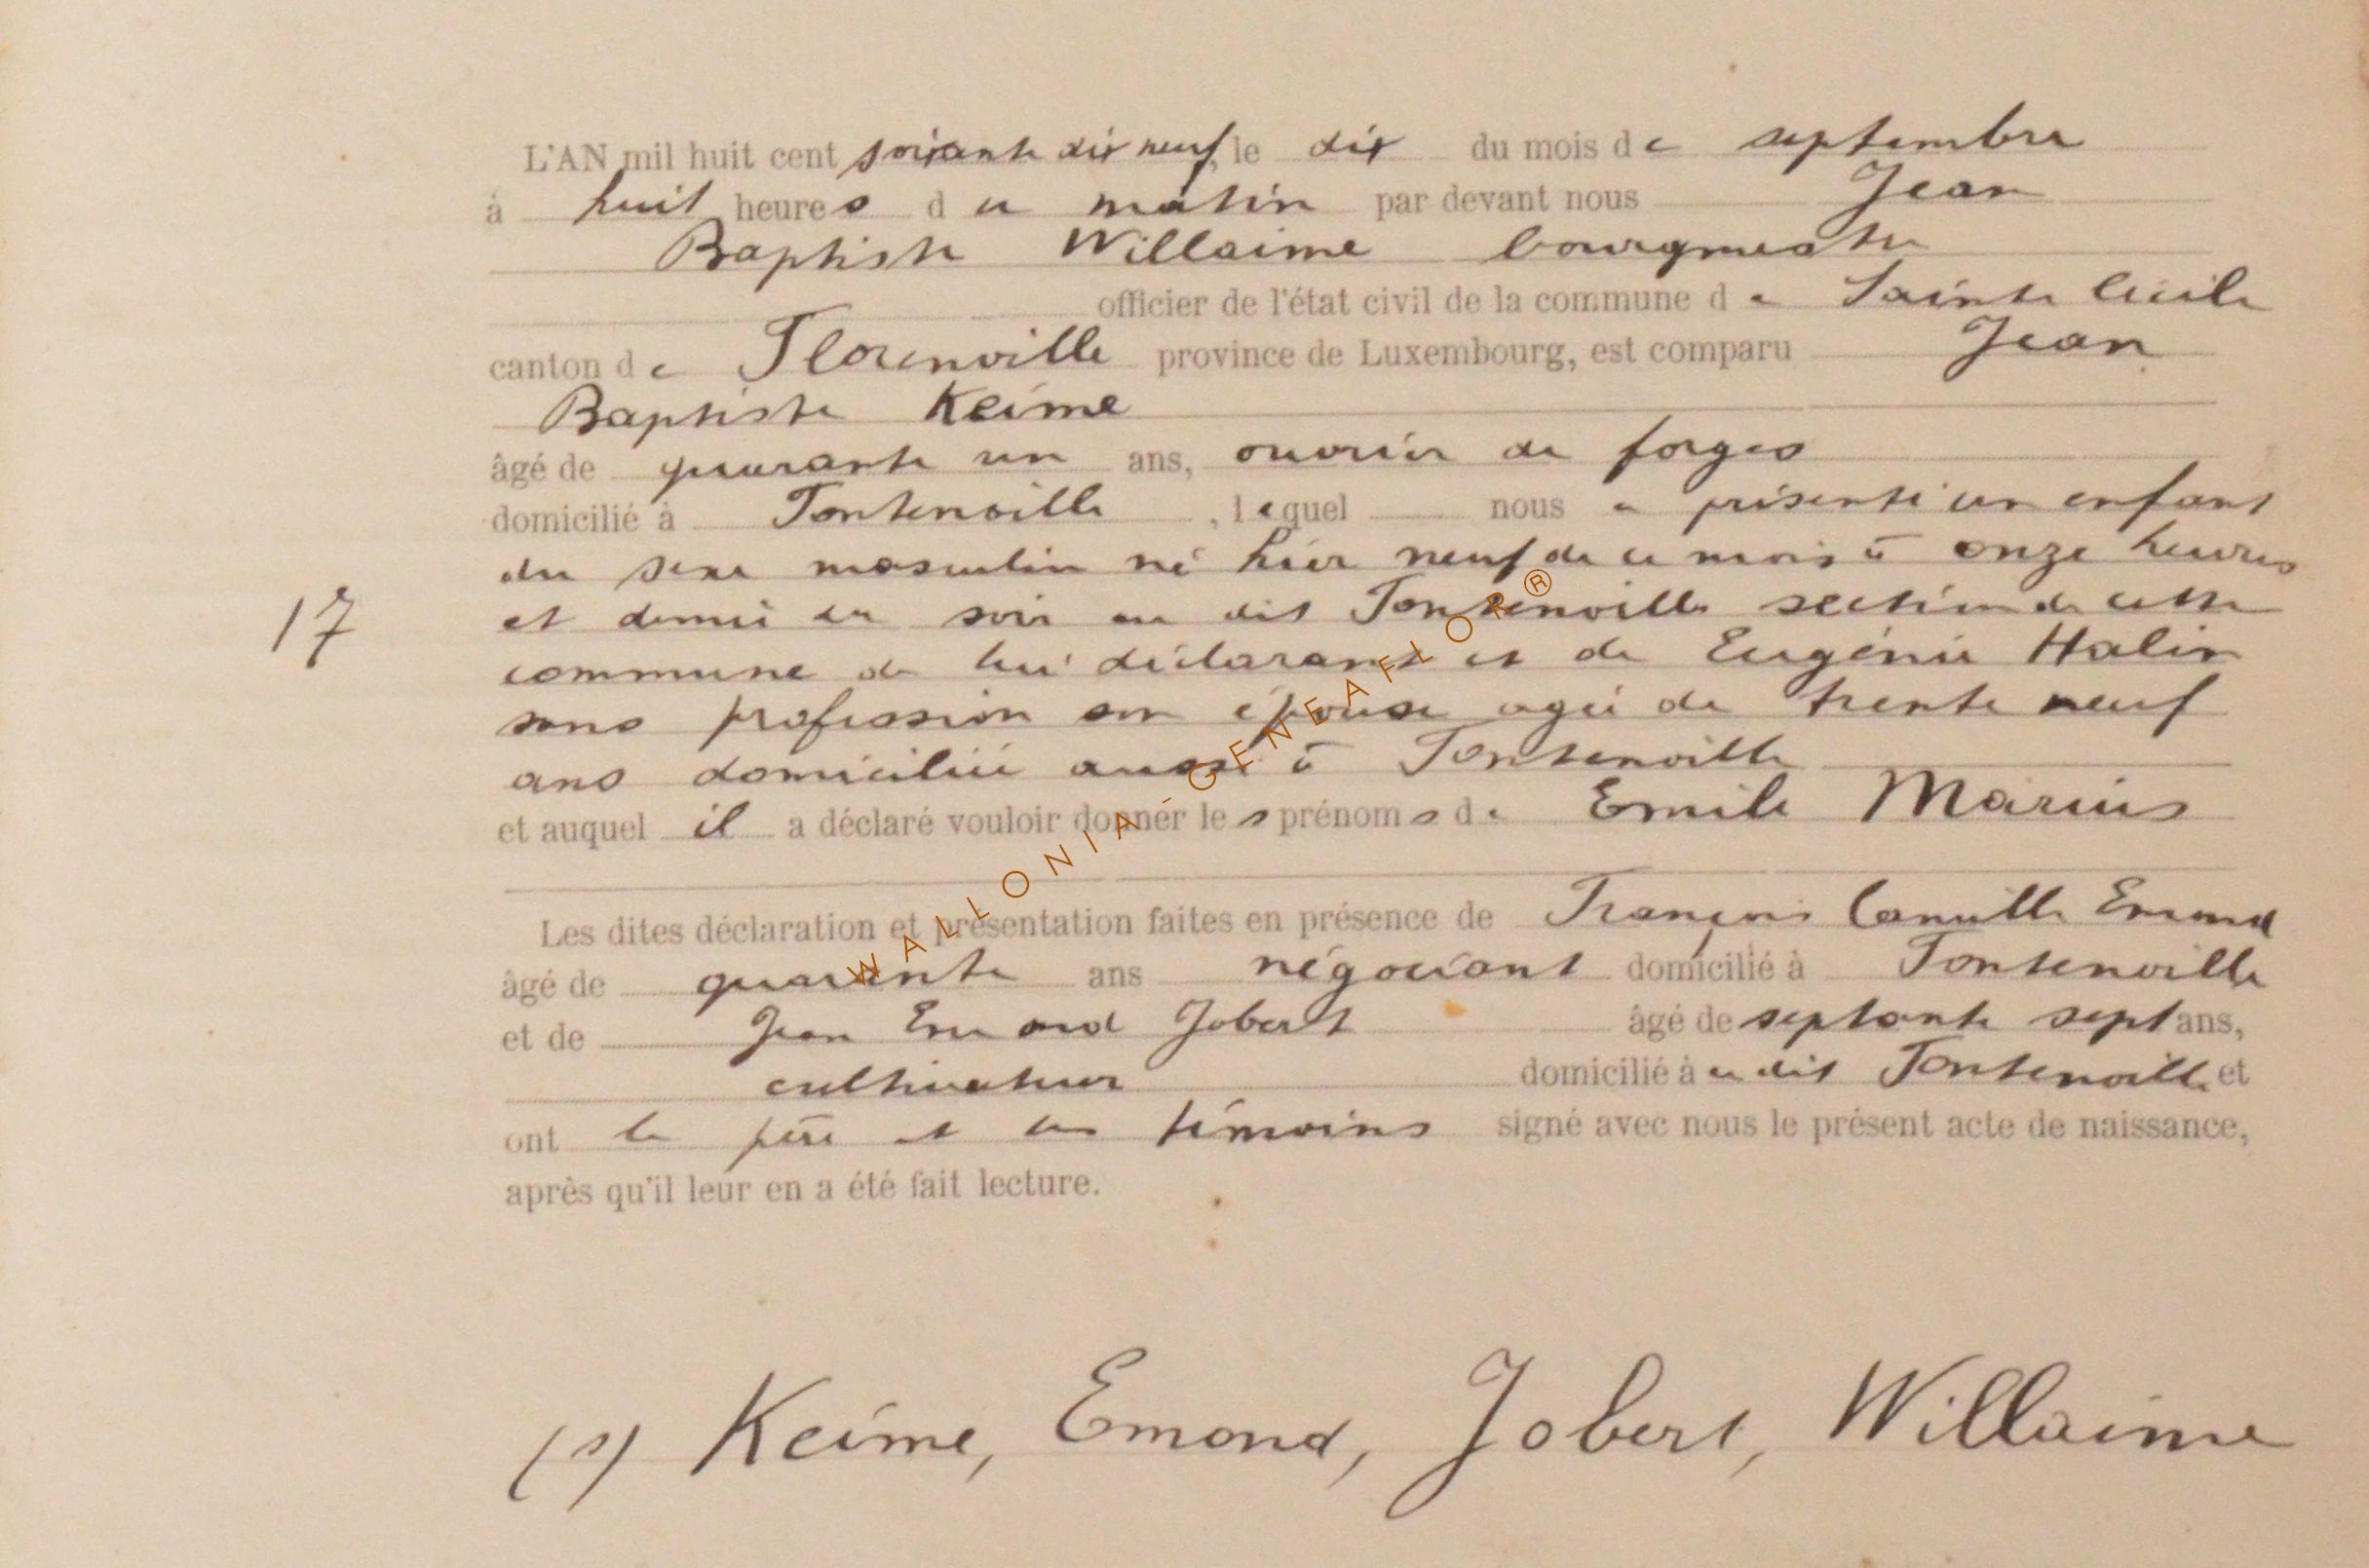 L'AN mil huit cent soixante dix neuf, le dix du mois de septembre
à huit heures du matin par devant nous Jean
Baptiste Willaime bourgmestre
officier de l'état civil de la commune de Sainte Cécile
canton de Florenville province de Luxembourg, est comparu Jean
Baptiste Keime
âgé de quarante un ans, ouvrier de forges
domicilié à Fontenoille, lequel nous a présenté un enfant
du sexe masculin né hier neuf de ce mois à onze heures
17
et demie du soir au dit Fontenoille section de cette
commune de lui déclarant et de Eugénie Halin
sans profession son épouse agée de trente neuf
ans domiciliée aussi à Fontenoille
et auquel il a déclaré vouloir donner les prénoms de Emile Marius
Les dites déclaration et présentation faites en présence de François Camille Emond
âgé de quarante ans négociant domicilié à Fontenoille
et de Jean Emond Jobert âgé de septante sept ans,
cultivateur domicilié à u dit Fontenoille et
ont le père et les témoins signé avec nous le présent acte de naissance,
après qu'il leur en a été fait lecture.
(s) Keime, Emond, Jobert, Willaime
WALLONIA-GENEAFLOR®